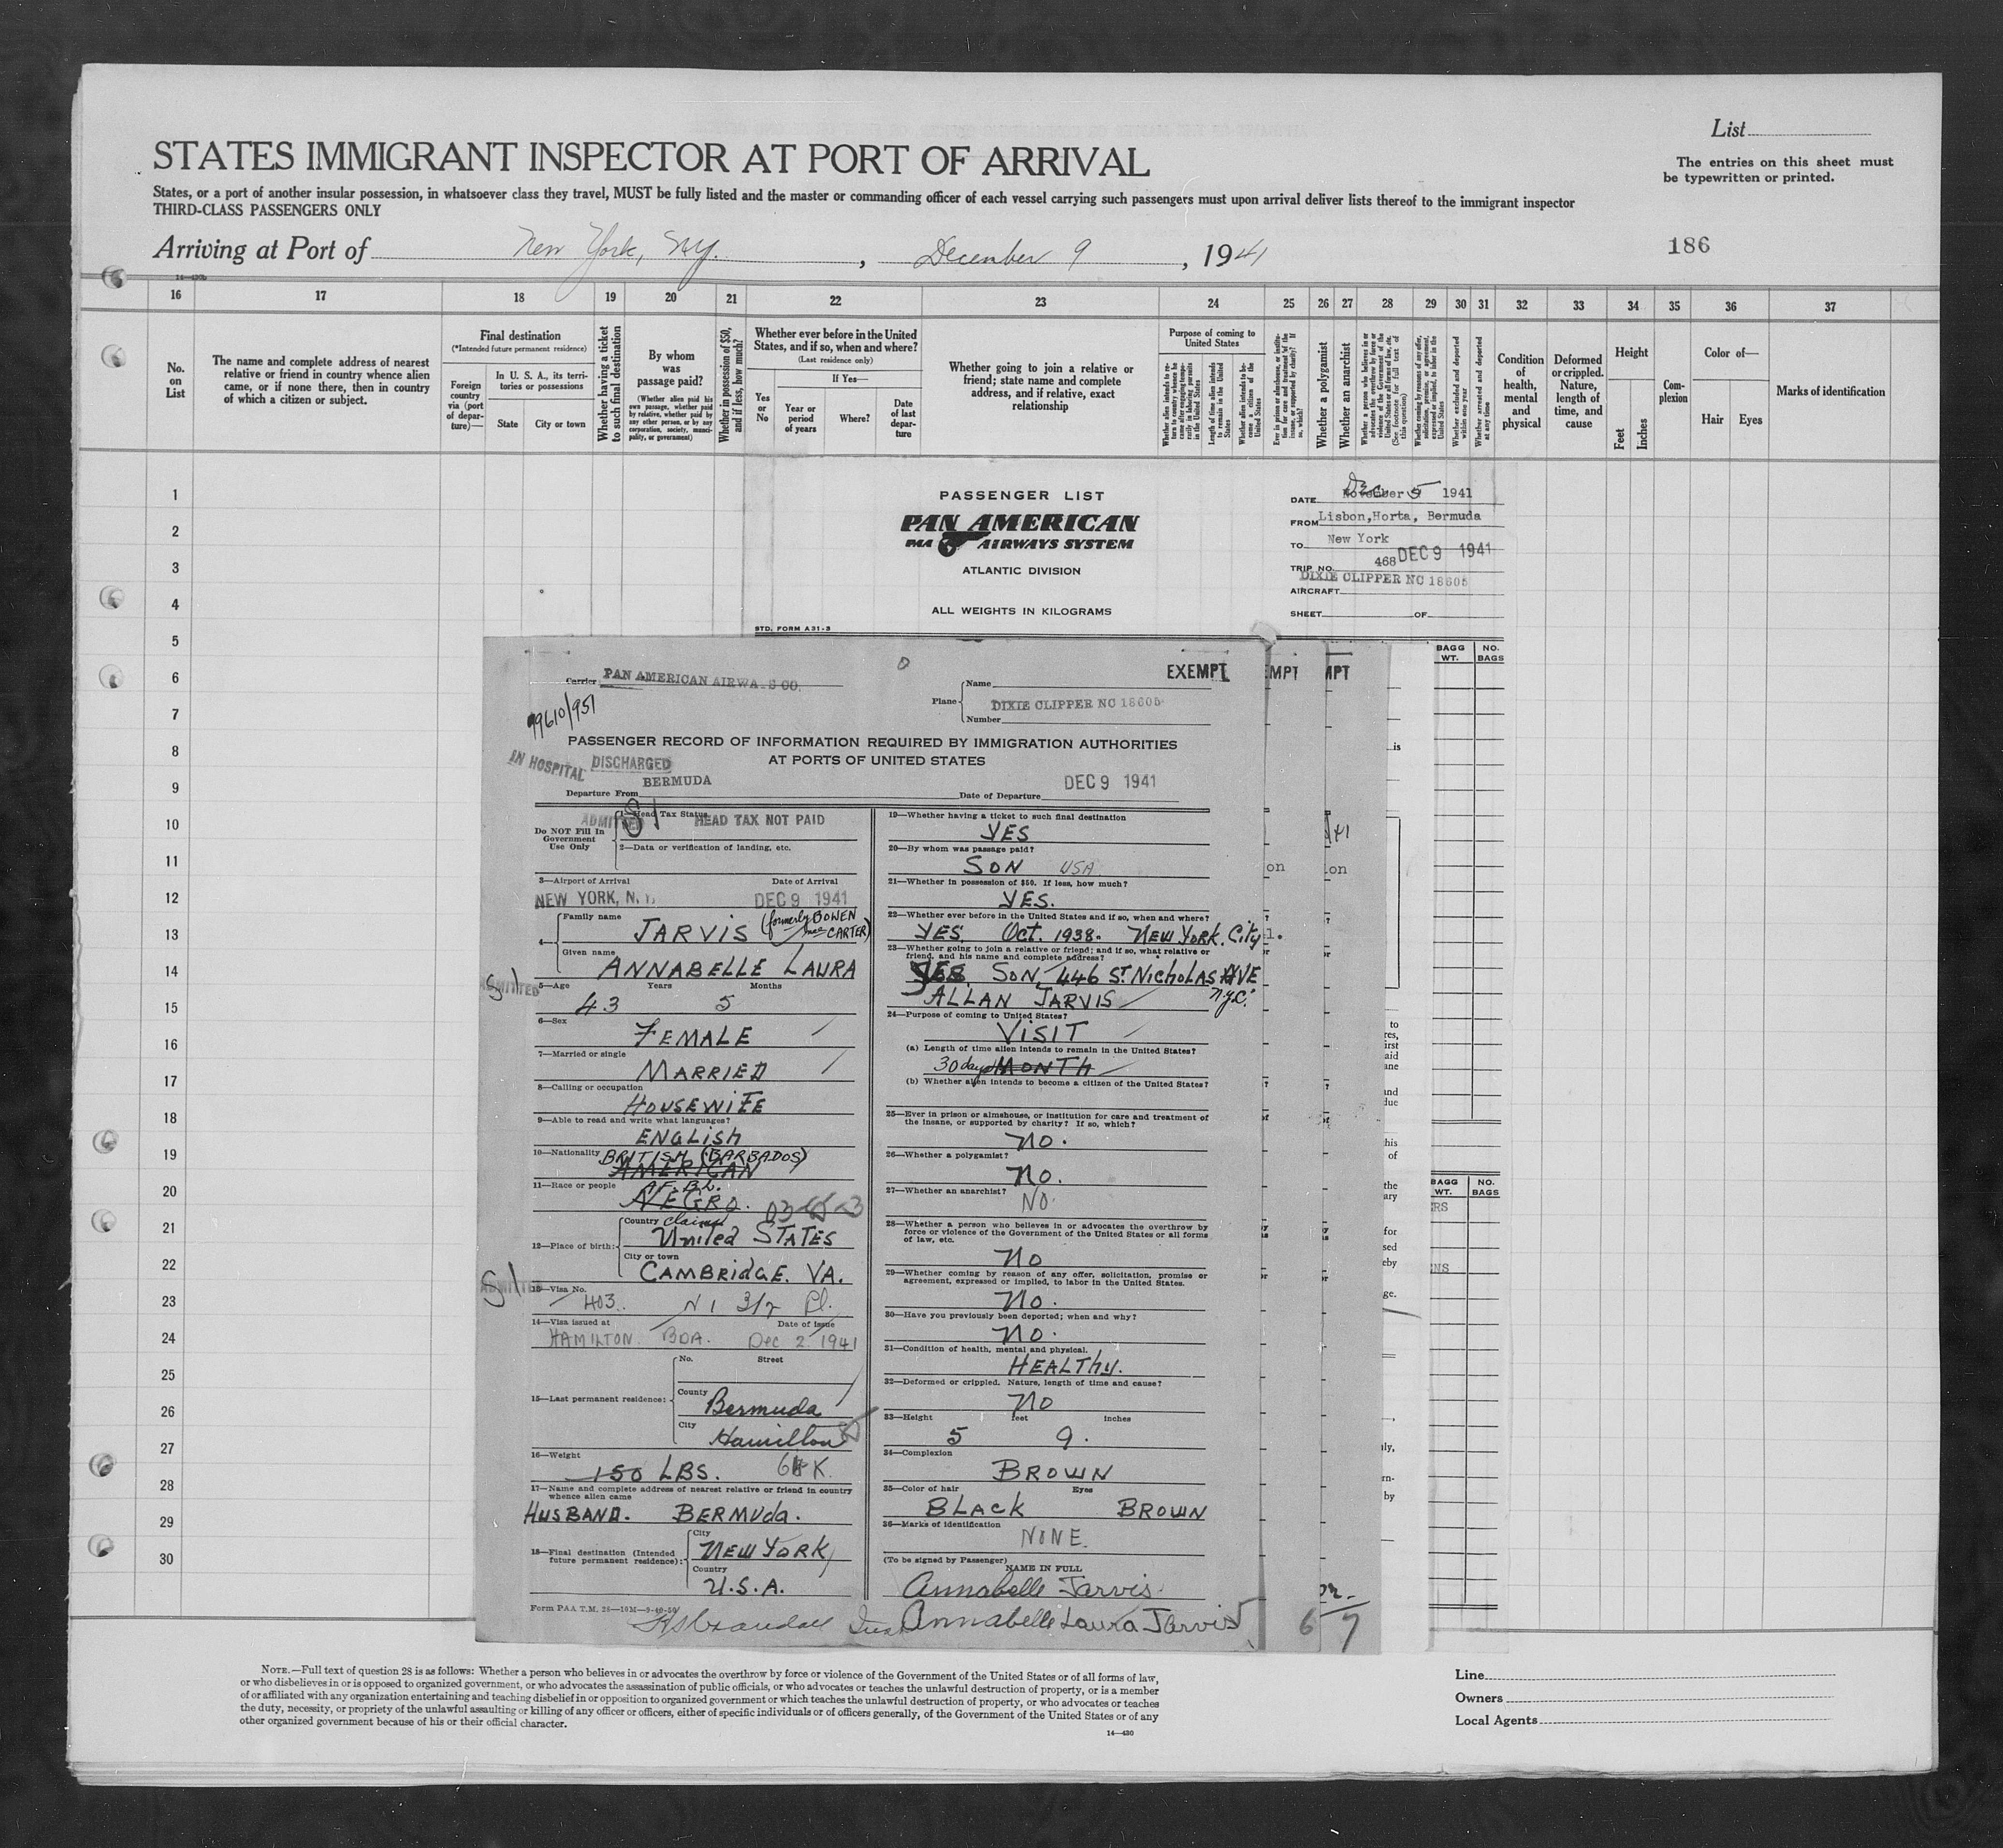 List
STATES IMMIGRANT INSPECTOR AT PORT OF ARRIVAL
The entries on this sheet must
be typewritten or printed.
States, or a port of another insular possession, in whatsoever class they travel, MUST be fully listed and the master or commanding officer of each vessel carrying such passengers must upon arrival deliver lists thereof to the immigrant inspector
THIRD-CLASS PASSENGERS ONLY
Arriving at Port of New York, NY. , December 9 , 1941
186
16 17 18 19 20 21 22 23 24 25 26 27 28 29 30 31 32 33 34 35 36 37
No. on List
The name and complete address of nearest
relative or friend in country whence alien
came, or if none there, then in country
of which a citizen or subject.
Final destination
(*Intended future permanent residence)
Foreign country via (port of departure)—
In U. S. A., its territories or possessions
State
City or town
Whether having a ticket to such final destination
By whom was passage paid?
(Whether alien paid his own passage, whether paid by relative, whether paid by any other person, or by any corporation, society, municipality, or government)
Whether in possession of $50, and if less, how much?
Whether ever before in the United
States, and if so, when and where?
(Last residence only)
Yes or No
If Yes—
Year or period of years
Where?
Date of last departure
Whether going to join a relative or
friend; state name and complete
address, and if relative, exact
relationship
Purpose of coming to United States
Whether alien intends to return to country whence he came after engaging temporarily in laboring pursuits in the United States
Length of time alien intends to remain in the United States
Whether alien intends to become a citizen of the United States
Whether a polygamist
Whether an anarchist
Whether excluded and deported within one year
Whether arrested and deported at any time
Condition of health, mental and physical
Deformed or crippled. Nature, length of time, and cause
Height
Feet
Inches
Complexion
Color of—
Hair
Eyes
Marks of identification
1
2
3
4
5
6
7
8
9
10
11
12
13
14
15
16
17
18
19
20
21
22
23
24
25
26
27
28
29
30
PASSENGER LIST
PAN AMERICAN
PAA AIRWAYS SYSTEM
ATLANTIC DIVISION
ALL WEIGHTS IN KILOGRAMS
STD. FORM A31-3
DATE November Dec 5 1941
FROM Lisbon, Horta, Bermuda
TO New York
TRIP NO. 468 DEC 9 1941
DIXIE CLIPPER NC 18605
AIRCRAFT
SHEET OF
BAGG WT. NO. BAGS
Carrier PAN AMERICAN AIRWA S CO.
EXEMPT
MPT
MPT
99610/951
Plane Name
DIXIE CLIPPER NC 18605
Number
PASSENGER RECORD OF INFORMATION REQUIRED BY IMMIGRATION AUTHORITIES
AT PORTS OF UNITED STATES
IN HOSPITAL DISCHARGED
Departure From BERMUDA
Date of Departure DEC 9 1941
Do NOT Fill In Government Use Only
1—Head Tax Status
ADMITTED HEAD TAX NOT PAID
2—Data or verification of landing, etc.
3—Airport of Arrival Date of Arrival
NEW YORK, N. Y. DEC 9 1941
4— Family name JARVIS (formerly BOWEN
nee CARTER)
Given name ANNABELLE LAURA
ADMITTED
5—Age Years Months
43 5
6—Sex FEMALE
7—Married or single MARRIED
8—Calling or occupation HOUSEWIFE
9—Able to read and write what languages?
ENGLISH
10—Nationality BRITISH (BARBADOS)
AMERICAN
11—Race or people AF. BL.
NEGRO.
12—Place of birth: Country claims
United STATES
City or town
CAMBRIDGE. VA.
ADMITTED
13—Visa No.
403.
14—Visa issued at Date of issue
HAMILTON. BDA. Dec 2 1941
15—Last permanent residence: No. Street
County Bermuda
City Hamilton
16—Weight
150 LBS.
17—Name and complete address of nearest relative or friend in country
whence alien came
HUSBAND. BERMUDA.
18—Final destination (Intended
future permanent residence):
City NEW YORK
Country U.S.A.
Form PAA T.M. 26—10M—9-40-50
19—Whether having a ticket to such final destination
YES
20—By whom was passage paid?
SON USA
21—Whether in possession of $50. If less, how much?
YES.
22—Whether ever before in the United States and if so, when and where?
YES. Oct. 1938. NEW YORK. City
23—Whether going to join a relative or friend; and if so, what relative or
friend, and his name and complete address?
YES SON, 446 ST. NICHOLAS AVE
ALLAN JARVIS N.Y.C.
24—Purpose of coming to United States?
VISIT
(a) Length of time alien intends to remain in the United States?
30 days MONTH
(b) Whether alien intends to become a citizen of the United States?
25—Ever in prison or almshouse, or institution for care and treatment of
the insane, or supported by charity? If so, which?
NO.
26—Whether a polygamist?
NO.
27—Whether an anarchist?
NO.
28—Whether a person who believes in or advocates the overthrow by
force or violence of the Government of the United States or all forms
of law, etc.
NO
29—Whether coming by reason of any offer, solicitation, promise or
agreement, expressed or implied, to labor in the United States.
NO.
30—Have you previously been deported; when and why?
NO.
31—Condition of health, mental and physical.
HEALTHY.
32—Deformed or crippled. Nature, length of time and cause?
NO
33—Height feet inches
5 9.
34—Complexion
BROWN
35—Color of hair Eyes
BLACK BROWN
36—Marks of identification
NONE.
(To be signed by Passenger)
NAME IN FULL
Annabelle Jarvis
Annabelle Laura Jarvis
6 7
NOTE.—Full text of question 28 is as follows: Whether a person who believes in or advocates the overthrow by force or violence of the Government of the United States or of all forms of law,
or who disbelieves in or is opposed to organized government, or who advocates the assassination of public officials, or who advocates or teaches the unlawful destruction of property, or is a member
of or affiliated with any organization entertaining and teaching disbelief in or opposition to organized government or which teaches the unlawful destruction of property, or who advocates or teaches
the duty, necessity, or propriety of the unlawful assaulting or killing of any officer or officers, either of specific individuals or of officers generally, of the Government of the United States or of any
other organized government because of his or their official character.
14—430
Line
Owners
Local Agents